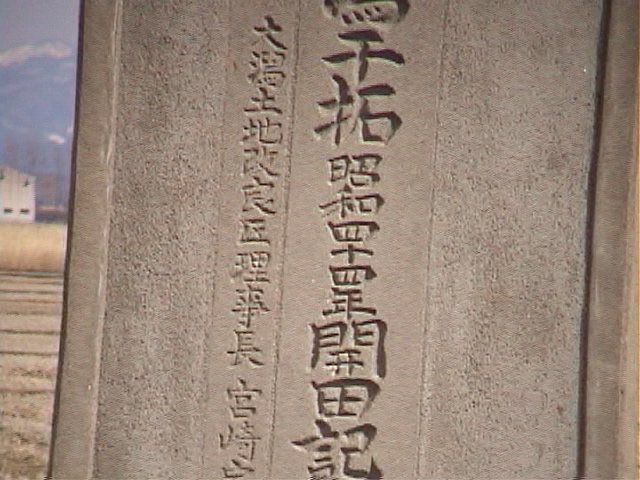 干拓昭和四十四年開田記
大潟土地改良区理事長 宮崎